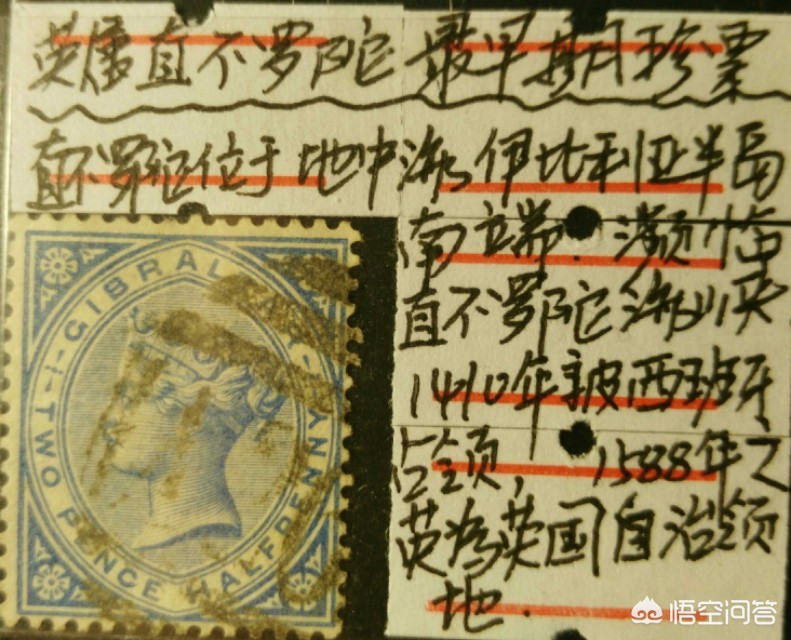 英属直不罗陀 最早期珍票
直不罗陀位于地中海伊比利亚半岛
南立端. 濒临
直不罗陀海峡
1410年被西班牙
占领, 1588年之
英为英国自治领
地.
GIBRALTAR
TWO PENCE HALFPENNY
悟空问答